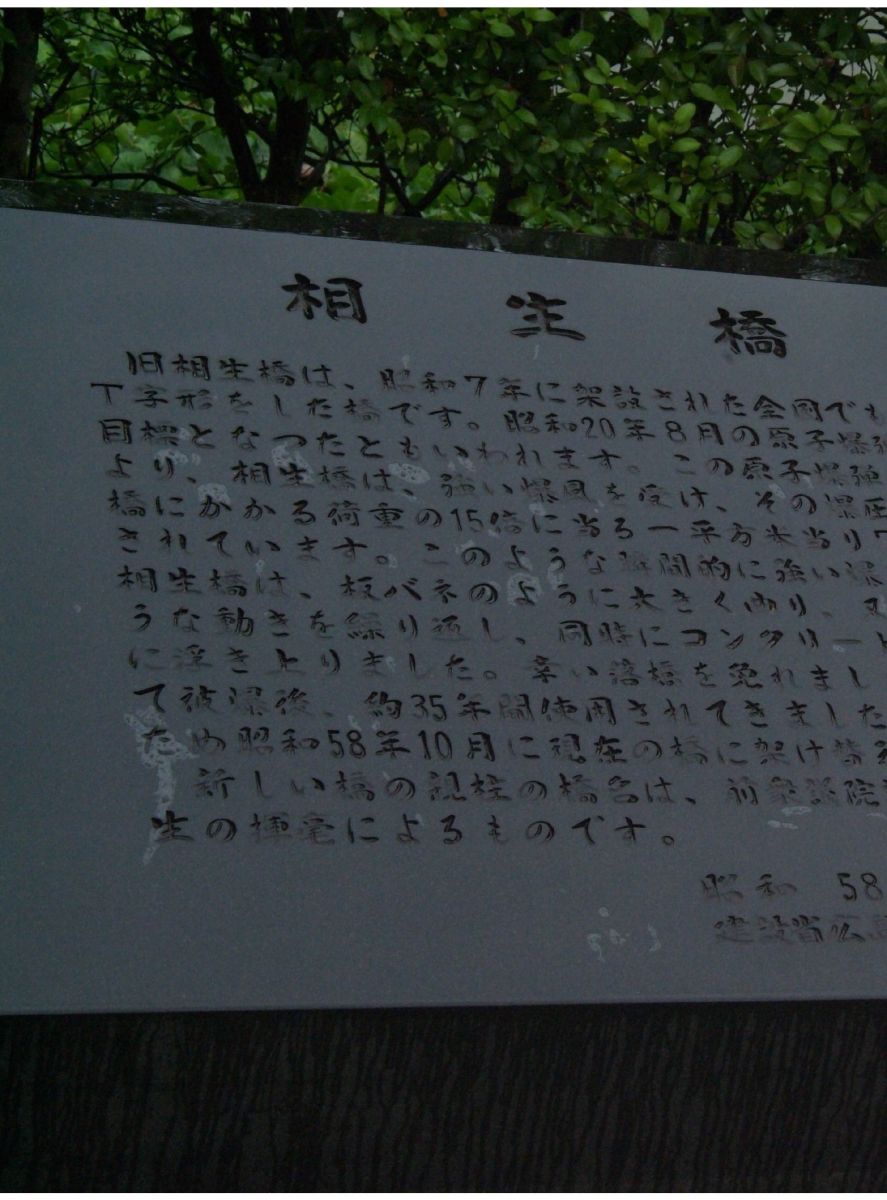 相生橋
旧相生橋は、昭和7年に架設された全国でも
T字形をした橋です。昭和20年8月の原子爆弾
目標となつたともいわれます。この原子爆弾
より、相生橋は、強い爆風を受け、その爆圧
橋にかかる荷重の15倍に当る一平方米当り7
されています。このような瞬間的に強い爆
相生橋は、板バネのように大きく
うな動きを繰り返し、同時にコンクリート
に浮き上りました。幸い落橋を免れまし
て被爆後、約35年間使用されてきました
ため昭和58年10月に現在の橋に架け替え
新しい橋の親柱の橋名は、前衆議院
生の揮毫によるものです。
昭和 58
建設省広島